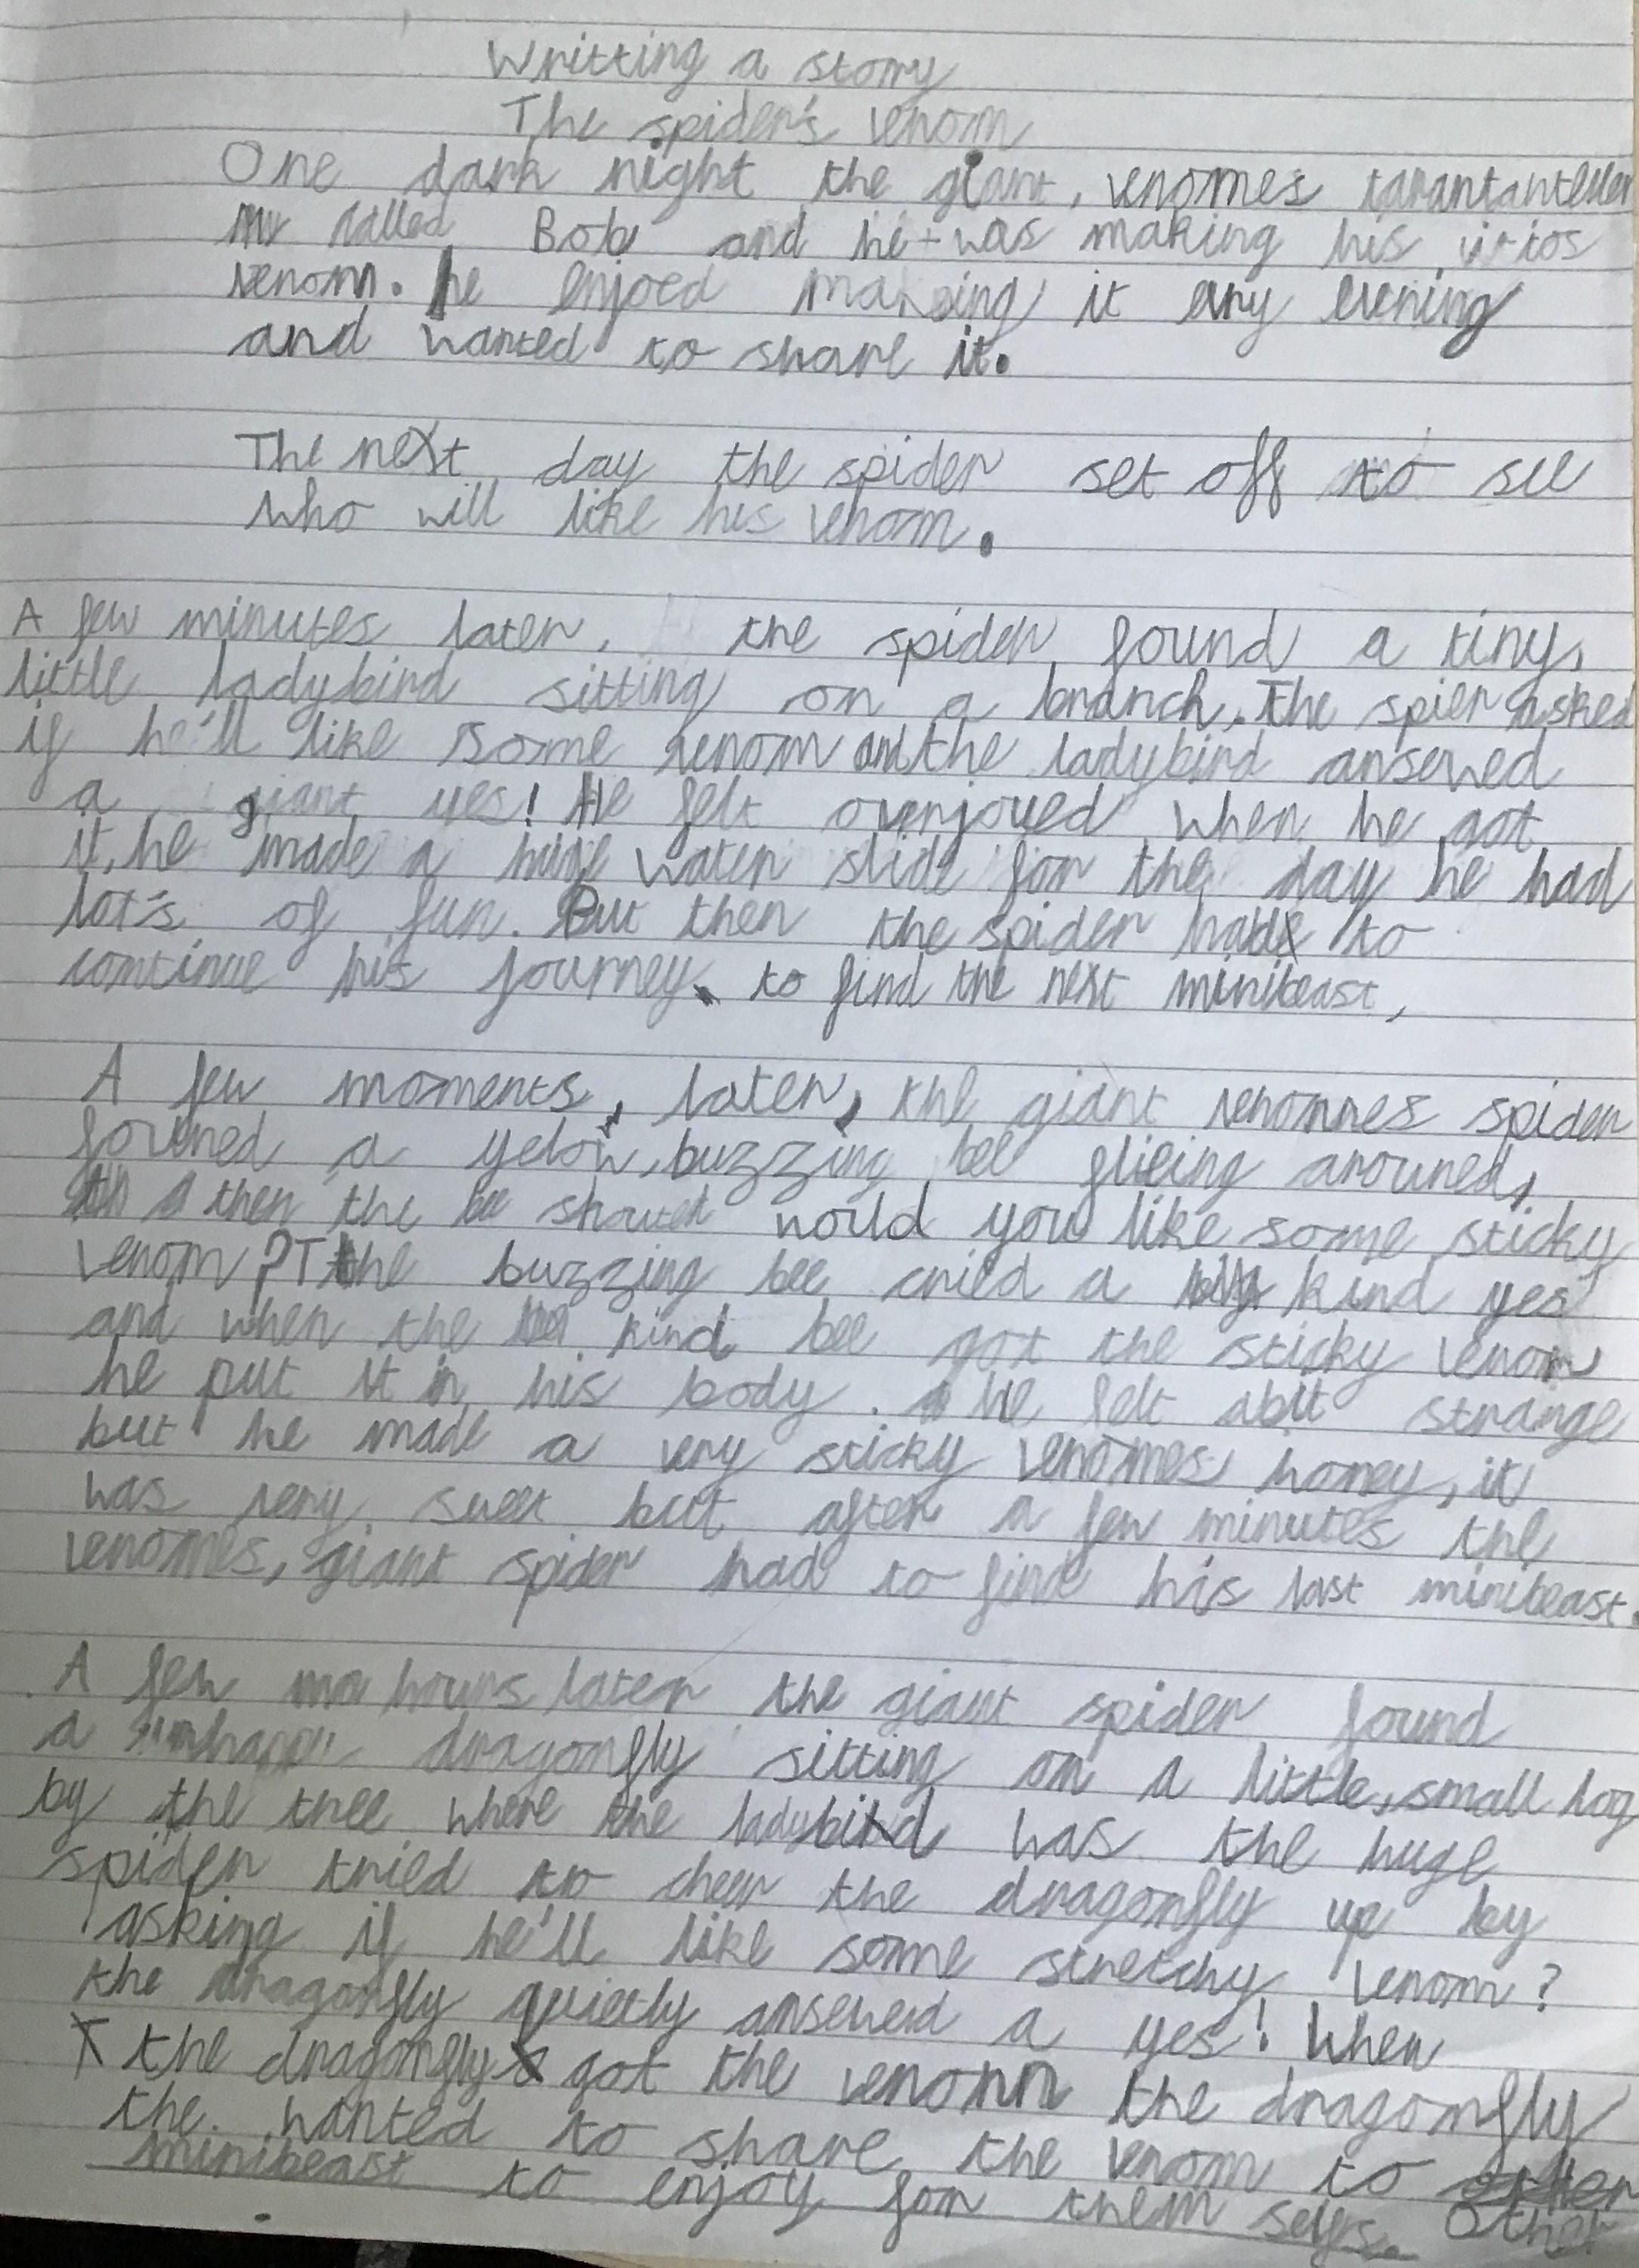 Writting a story
The spider's venom
One dark night the giant, venomes
called Bob and he was making his
venom. he enjoed making it evry evening
and wanted to share it.
The next day the spider set off to see
who will like his venom.
A few minutes later, the spider found a tiny,
little ladybird sitting on a branch. The spier asked
if he'll like some venom and the ladybird ansewed
a giant yes! He felt overjoyed when he got
it, he made a huge water slide for the day he had
lot's of fun. But then the spider had to
continue his journey to find the next minibeast,
A few moments, later, the giant venomnes spider
founed a yelow, buzzing bee flieing arouned,
then the bee shouted would you like some sticky
venom? The buzzing bee cried a kind yes
and when the kind bee got the sticky venom
he put it in his body. he felt abit strange
but he made a very sticky venomes honey, it
was very sweet but after a few minutes the
venomes, giant spider had to find his last minibeast.
A few hours later the giant spider found
a unhappy dragonfly sitting on a little, small log
by the tree where the ladybird was the huge
spider tried to cheer the dragonfly up by
asking if he'll like some stretchy venom?
the dragonfly quietly ansewerd a yes! When
the dragonfly got the venom the dragonfly
the wanted to share the venom to other
minibeast to enjoy for them selfs. Other